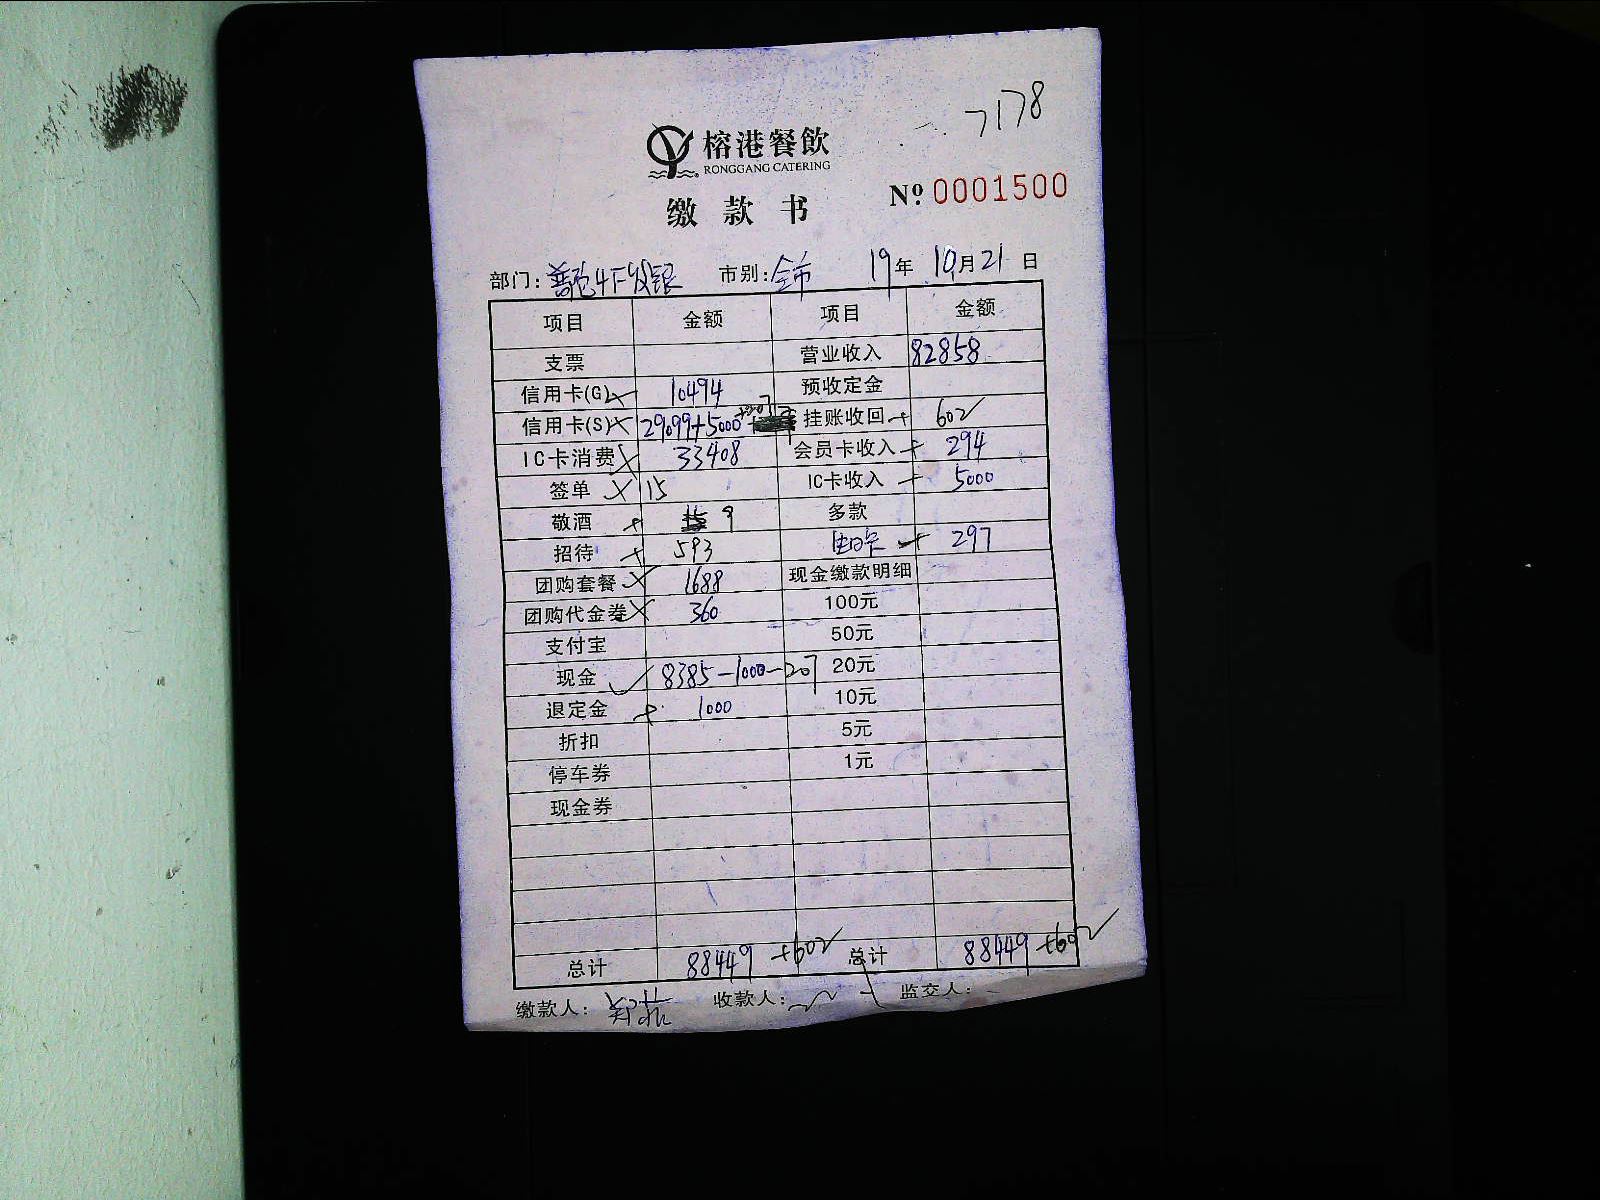 7178
榕港餐飲
RONGGANG CATERING
缴款书 Nº 0001500
部门: 市别:全市 19年10月21日
项目 金额 项目 金额
支票 营业收入 82858
信用卡(G) 10494 预收定金
信用卡(S) 29099+5000 挂账收回 + 602
IC卡消费 33408 会员卡收入 + 294
签单 15 IC卡收入 5000
敬酒 9 多款
招待 593 + 297
团购套餐 1688 现金缴款明细
团购代金券 360 100元
支付宝 50元
现金 8385-1000-207 20元
退定金 1000 10元
折扣 5元
停车券 1元
现金券
总计 88449 +602 总计 88449 +602
缴款人: 收款人: 监交人: